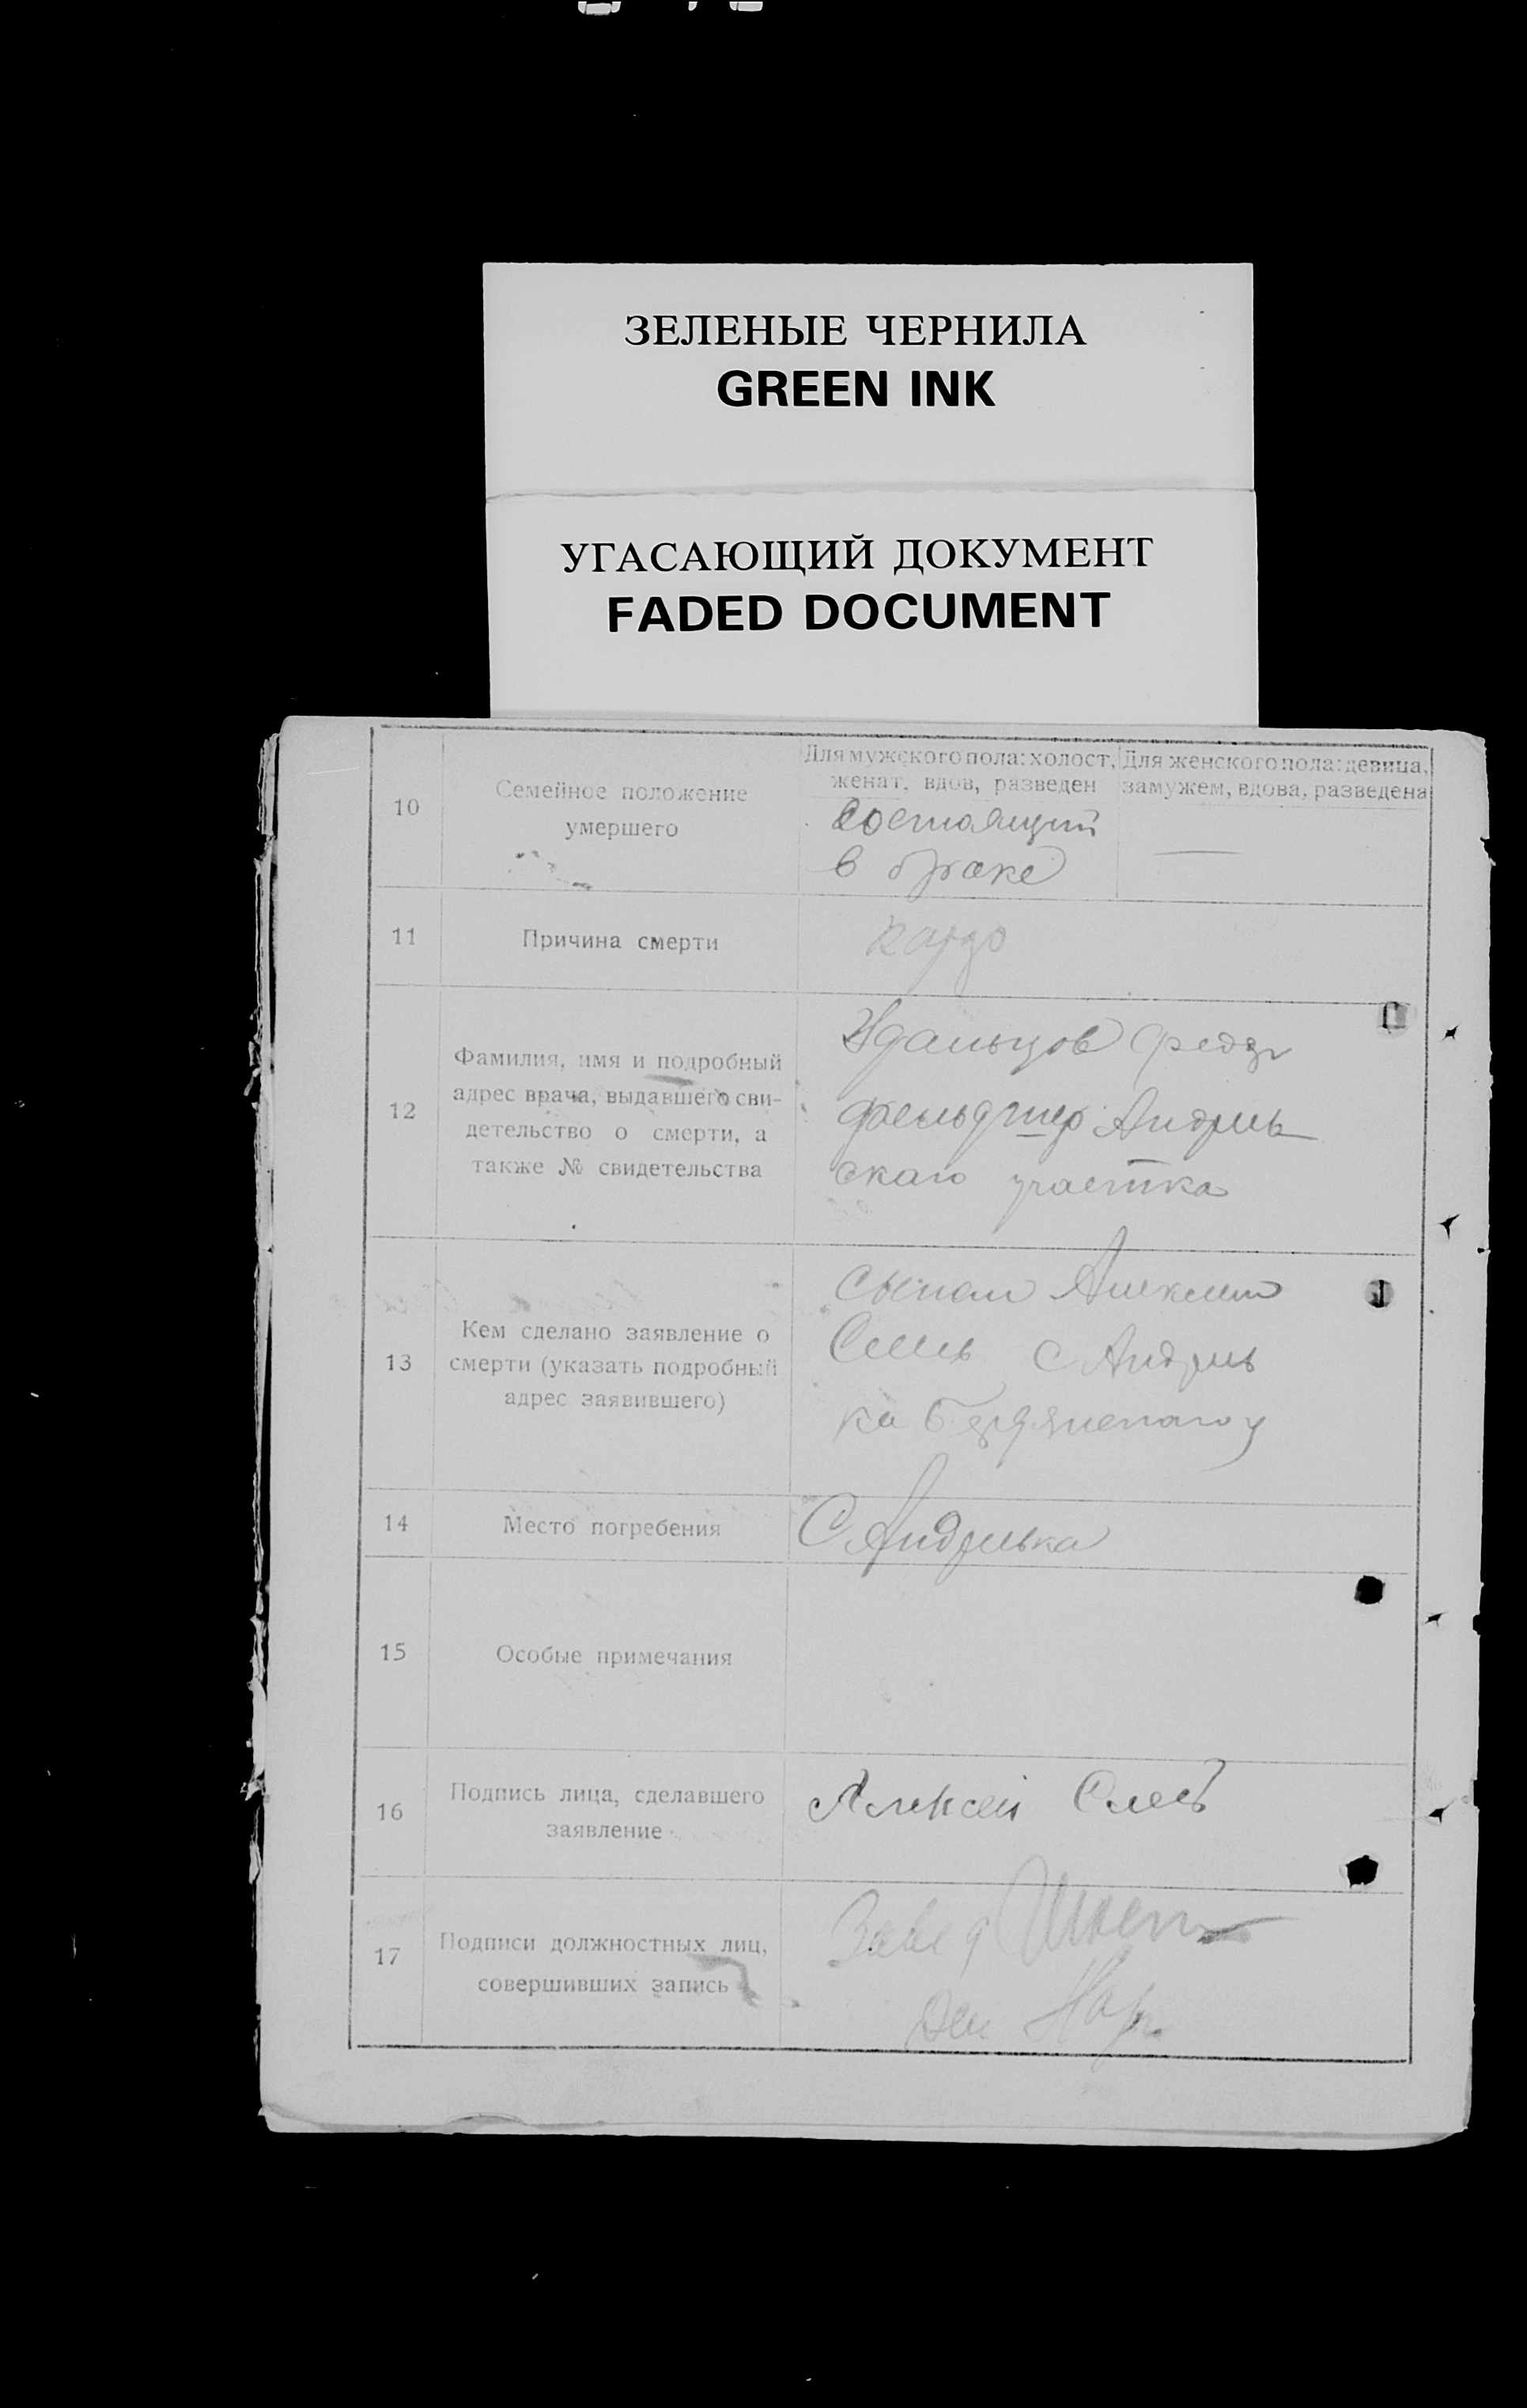 ЗЕЛЕНЫЕ ЧЕРНИЛА
GREEN INK
УГАСАЮЩИЙ ДОКУМЕНТ
FADED DOCUMENT
10
Семейное положение
умершего
Для мужского пола: холост,
женат, вдов, разведен
Для женского пола: девица,
замужем, вдова, разведена
состоящий
в браке
—
11
Причина смерти
12
Фамилия, имя и подробный
адрес врача, выдавшего сви-
детельство о смерти, а
также № свидетельства
Удальцов
фельдшер Андриев
скаго участка
13
Кем сделано заявление о
смерти (указать подробный
адрес заявившего)
сыном
с Андриев
ка Бердянскаго у
14
Место погребения
С Андриевка
15
Особые примечания
16
Подпись лица, сделавшего
заявление
Алексей
17
Подписи должностных лиц,
совершивших запись
Завед